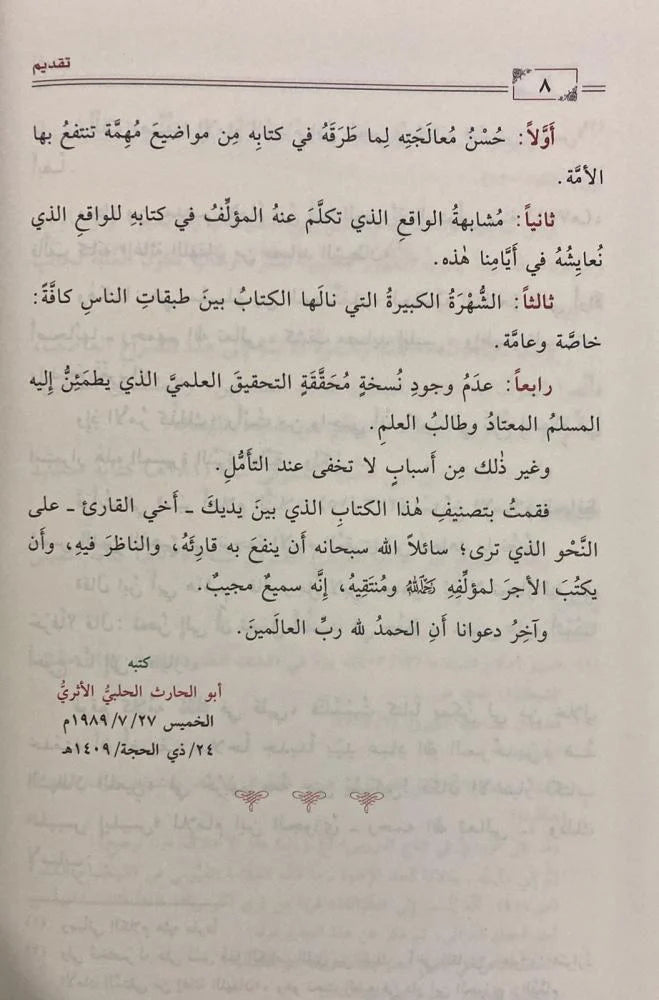 تقديم
٨
أَوَّلاً: حُسْنُ مُعالَجَتِه لِما طَرَقَهُ في كتابِه مِن مواضيعَ مُهِمَّة تنتفعُ بها
الأمَّة.
ثانياً: مُشابهةُ الواقعِ الذي تكلَّمَ عنهُ المؤلِّفُ في كتابهِ للواقعِ الذي
نُعايِشُهُ في أَيَّامِنا هٰذه.
ثالثاً: الشُّهْرَةُ الكبيرةُ التي نالَها الكتابُ بينَ طبقاتِ الناسِ كافَّةً:
خاصَّة وعامَّة.
رابعاً: عدَمُ وجودِ نُسخةٍ مُحَقَّقَةٍ التحقيقَ العلميَّ الذي يطمَئِنُّ إليه
المسلمُ المعتادُ وطالبُ العلمِ.
وغير ذٰلك مِن أَسبابٍ لا تخفى عند التأمُّلِ.
فقمتُ بتصنيفِ هٰذا الكتابِ الذي بينَ يديكَ ـ أَخي القارئ ـ على
النَّحْوِ الذي ترى؛ سائلاً الله سبحانه أَن ينفعَ به قارِئَهُ، والناظرَ فيهِ، وأَن
يكتُبَ الأجرَ لمؤلِّفِهِ رَحِمَهُ اللهُ ومُنتَقِيهُ، إنَّه سميعٌ مجيبٌ.
وآخِرُ دعوانا أَنِ الحمدُ لله ربِّ العالَمينَ.
كتبه
أبو الحارث الحلبيُّ الأثريُّ
الخميس ٢٧/ ٧/ ١٩٨٩م
٢٤/ ذي الحجة/ ١٤٠٩هـ